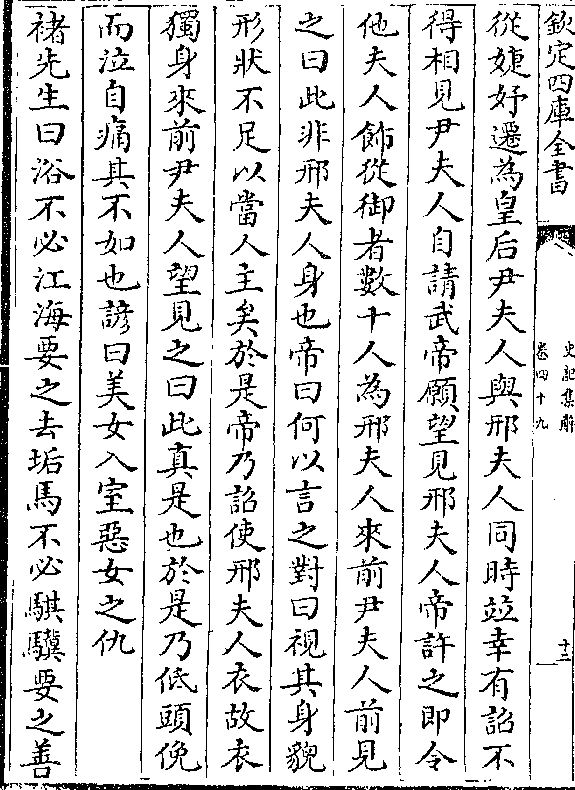 欽定四庫全書
史記集解
卷四十九
十三
從婕妤遷為皇后尹夫人與邢夫人同時並幸有詔不
得相見尹夫人自請武帝願望見邢夫人帝許之即令
他夫人飾從御者數十人為邢夫人來前尹夫人前見
之曰此非邢夫人身也帝曰何以言之對曰視其身貌
形狀不足以當人主矣於是帝乃詔使邢夫人衣故衣
獨身來前尹夫人望見之曰此真是也於是乃低頭俛
而泣自痛其不如也諺曰美女入室惡女之仇
褚先生曰浴不必江海要之去垢馬不必騏驥要之善